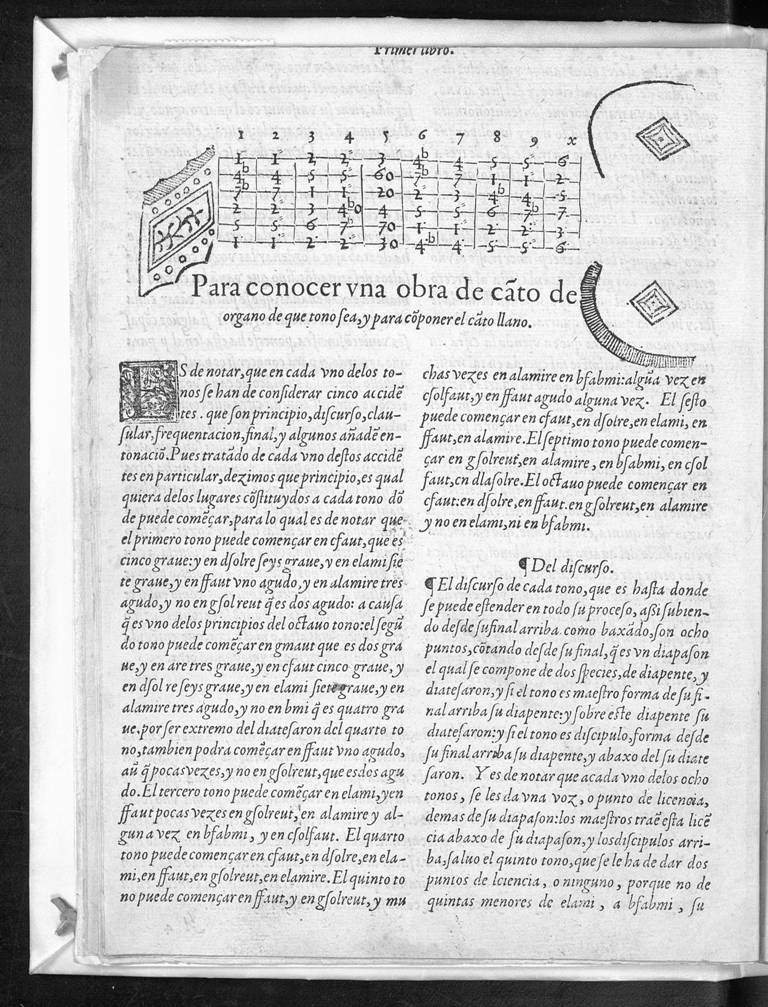 Primer libro.
1 2 3 4 5 6 7 8 9 x
Para conocer vna obra de cãto de
organo de que tono sea, y para cõponer el cãto llano.
ES de notar, que en cada vno delos to-
nos se han de considerar cinco accidẽ
tes. que son principio, discurso, clau-
sular, frequentacion, final, y algunos añadẽ en-
tonaciõ. Pues tratãdo de cada vno destos accidẽ
tes en particular, dezimos que principio, es qual
quiera delos lugares cõstituydos a cada tono dõ
de puede comẽçar, para lo qual es de notar que
el primero tono puede començar en cfaut, que es
cinco graue: y en dsolre seys graue, y en elami sie
te graue, y en ffaut vno agudo, y en alamire tres
agudo, y no en gsolreut q̃ es dos agudo: a causa
q̃ es vno delos principios del octauo tono: el segũ
do tono puede comẽçar en gmaut que es dos gra
ue, y en are tres graue, y en cfaut cinco graue, y
en dsolre seys graue, y en elami siete graue, y en
alamire tres agudo, y no en bmi q̃ es quatro gra
ue. por ser extremo del diatesaron del quarto to
no, tambien podra comẽçar en ffaut vno agudo,
aũ q̃ pocas vezes, y no en gsolreut, que es dos agu
do. El tercero tono puede comẽçar en elami, y en
ffaut pocas vezes en gsolreut, en alamire y al-
guna vez en bfabmi, y en csolfaut. El quarto
tono puede començar en cfaut, en dsolre, en ela-
mi, en ffaut, en gsolreut, en elamire. El quinto to
no puede començar en ffaut, y en gsolreut, y mu
chas vezes en alamire en bfabmi: algũa vez en
csolfaut, y en ffaut agudo alguna vez. El sesto
puede començar en cfaut, en dsolre, en elami, en
ffaut, en alamire. El septimo tono puede comen-
çar en gsolreut, en alamire, en bfabmi, en csol
faut, en dlasolre. El octauo puede començar en
cfaut: en dsolre, en ffaut. en gsolreut, en alamire
y no en elami, ni en bfabmi.
¶ Del discurso.
¶ El discurso de cada tono, que es hasta donde
se puede estender en todo su proceso, assi subien-
do desde su final arriba como baxãdo, son ocho
puntos, cõtando desde su final, q̃ es vn diapason
el qual se compone de dos species, de diapente, y
diatesaron, y si el tono es maestro forma de su fi-
nal arriba su diapente: y sobre este diapente su
diatesaron: y si el tono es discipulo, forma desde
su final arriba su diapente, y abaxo del su diate
saron. Y es de notar que acada vno delos ocho
tonos, se les da vna voz, o punto de licencia,
demas de su diapason: los maestros traẽ esta licẽ
cia abaxo de su diapason, y los discipulos arri-
ba, saluo el quinto tono, que se le ha de dar dos
puntos de lciencia, o ninguno, porque no de
quintas menores de elami, a bfabmi, su